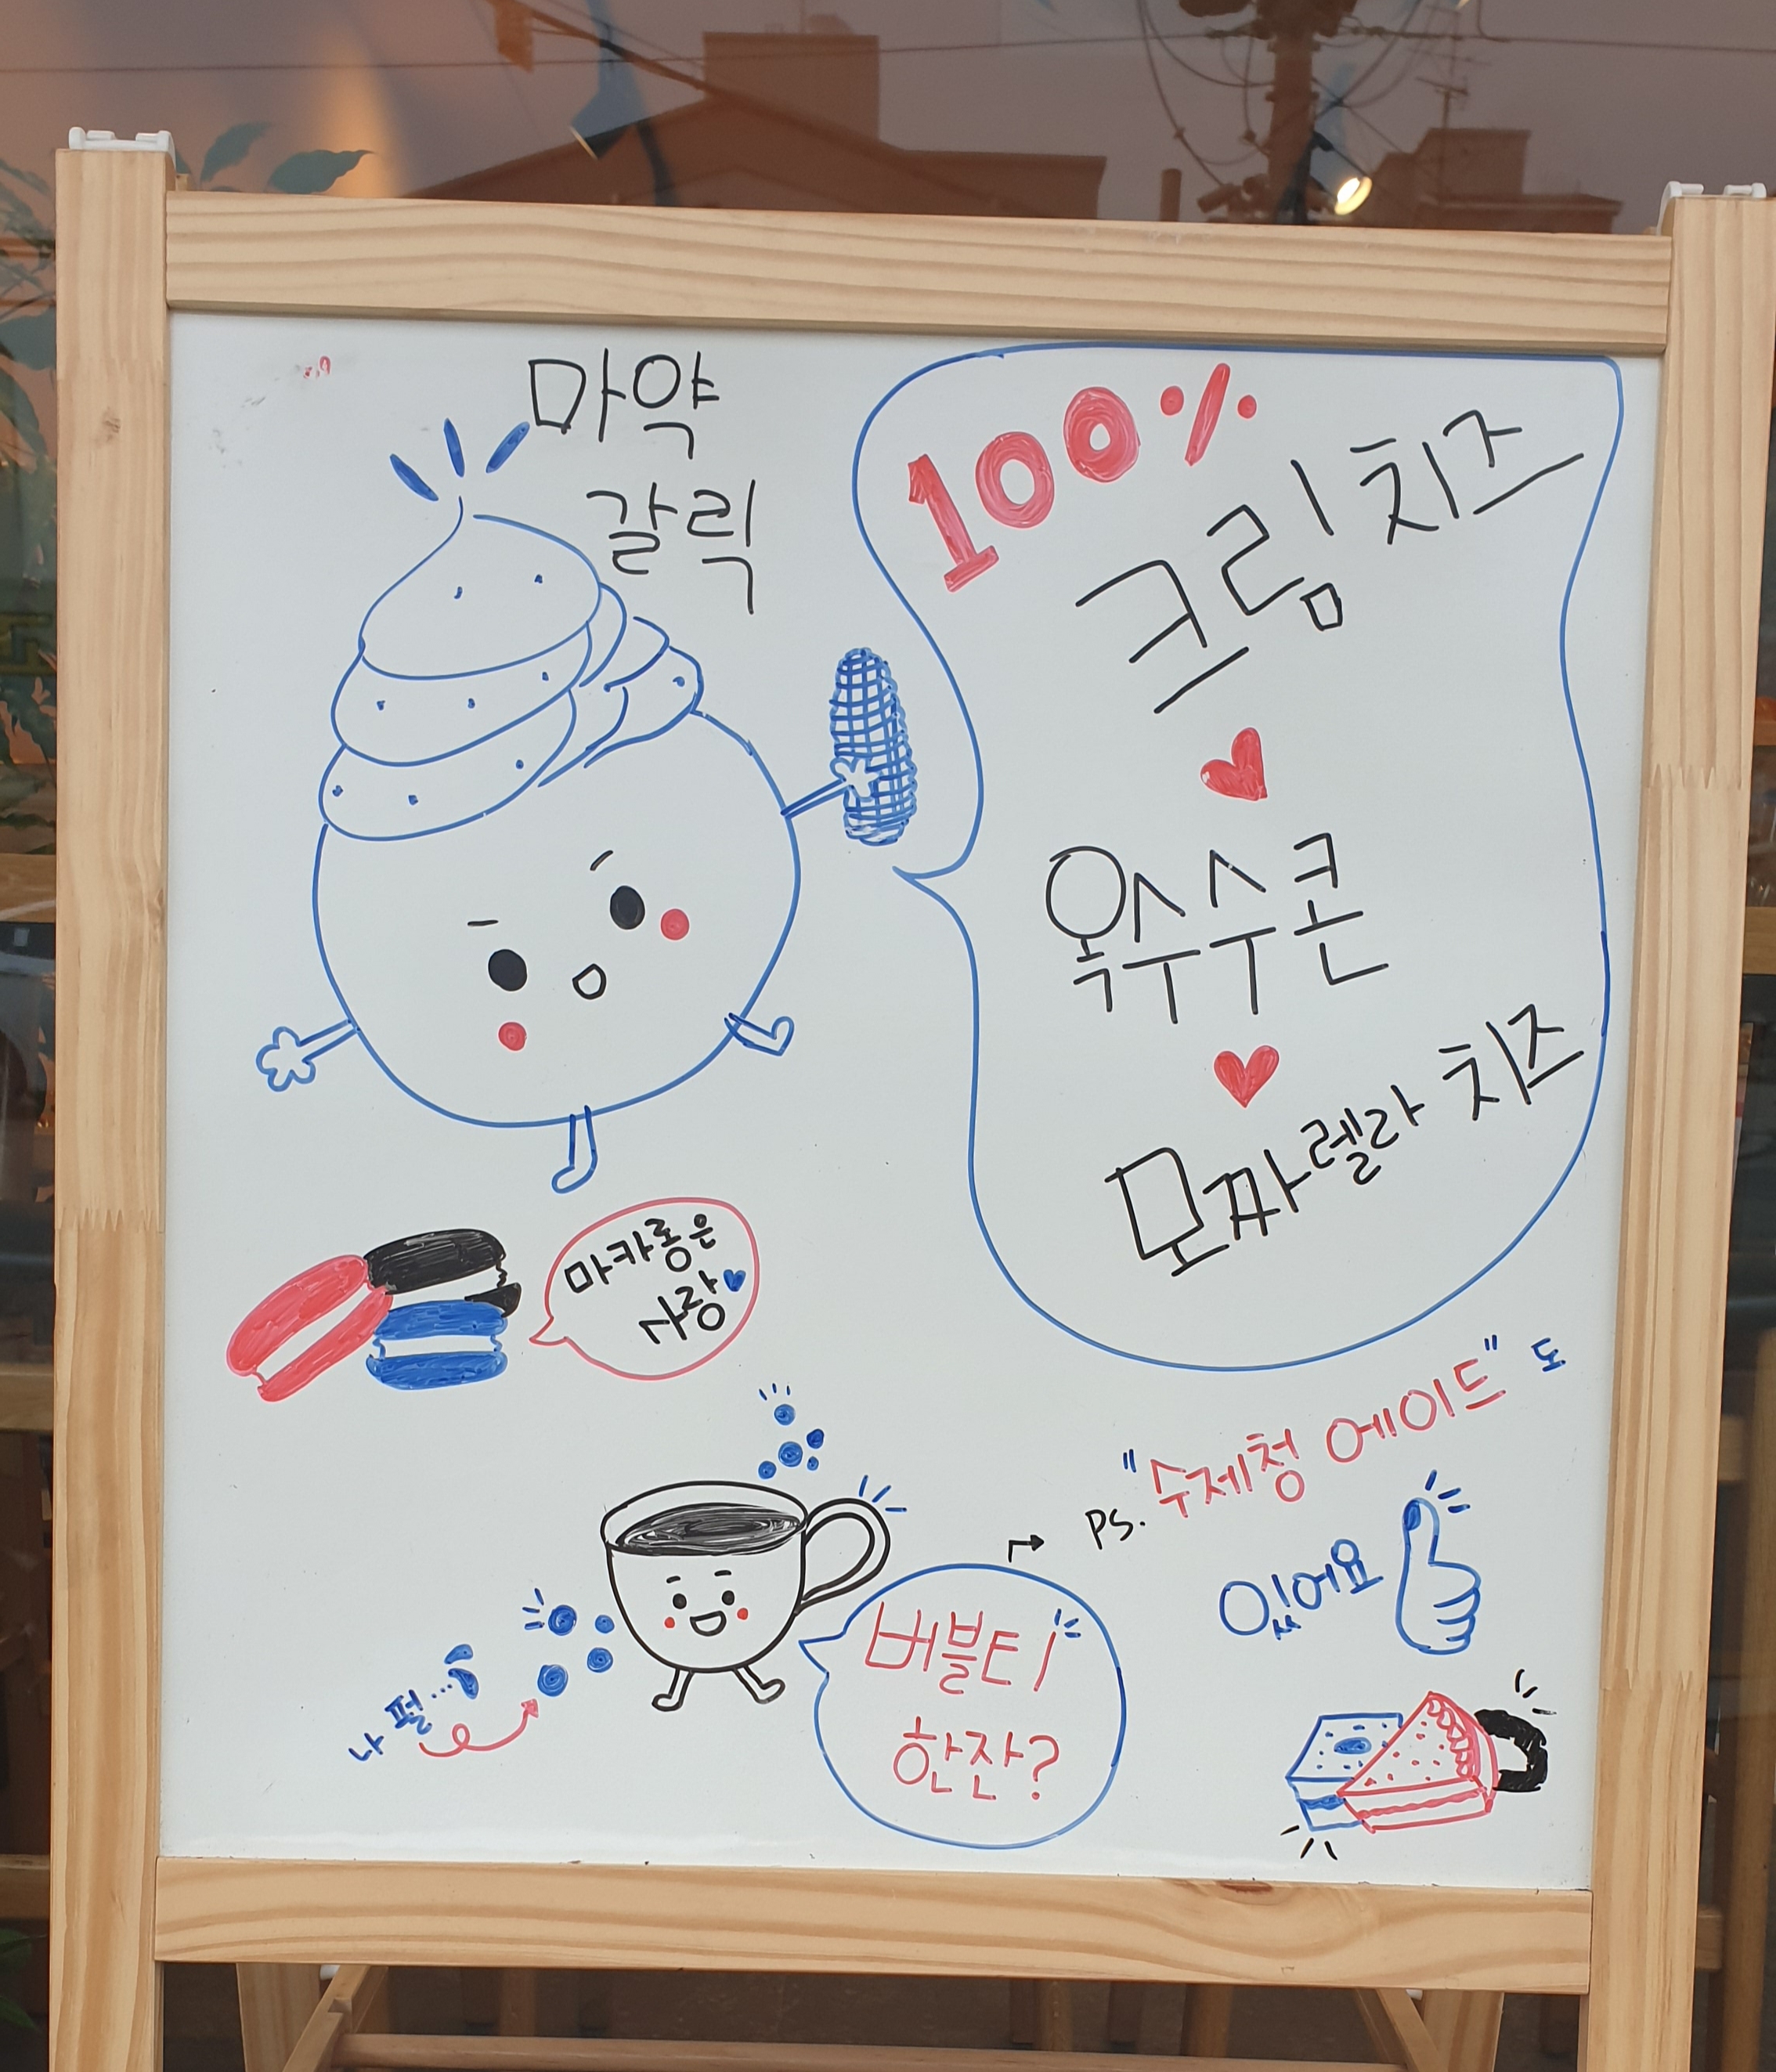 마약
갈릭
100%
크림치즈
옥수수콘
모짜렐라 치즈
마카롱은
사랑
PS. "수제청 에이드" 도
있어요
버블티
한잔?
나 펄...